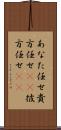 あなた任せ貴
方任せ彼
方任せ